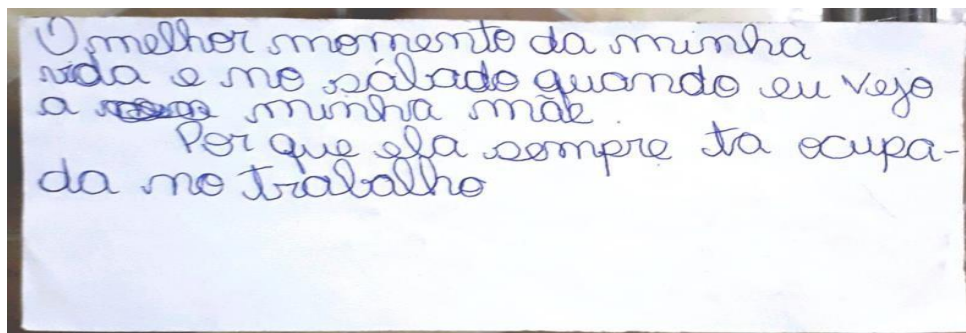 O melhor momento da minha
vida e no sábado quando eu vejo
a minha mãe.
Por que ela sempre ta ocupa-
da no trabalho